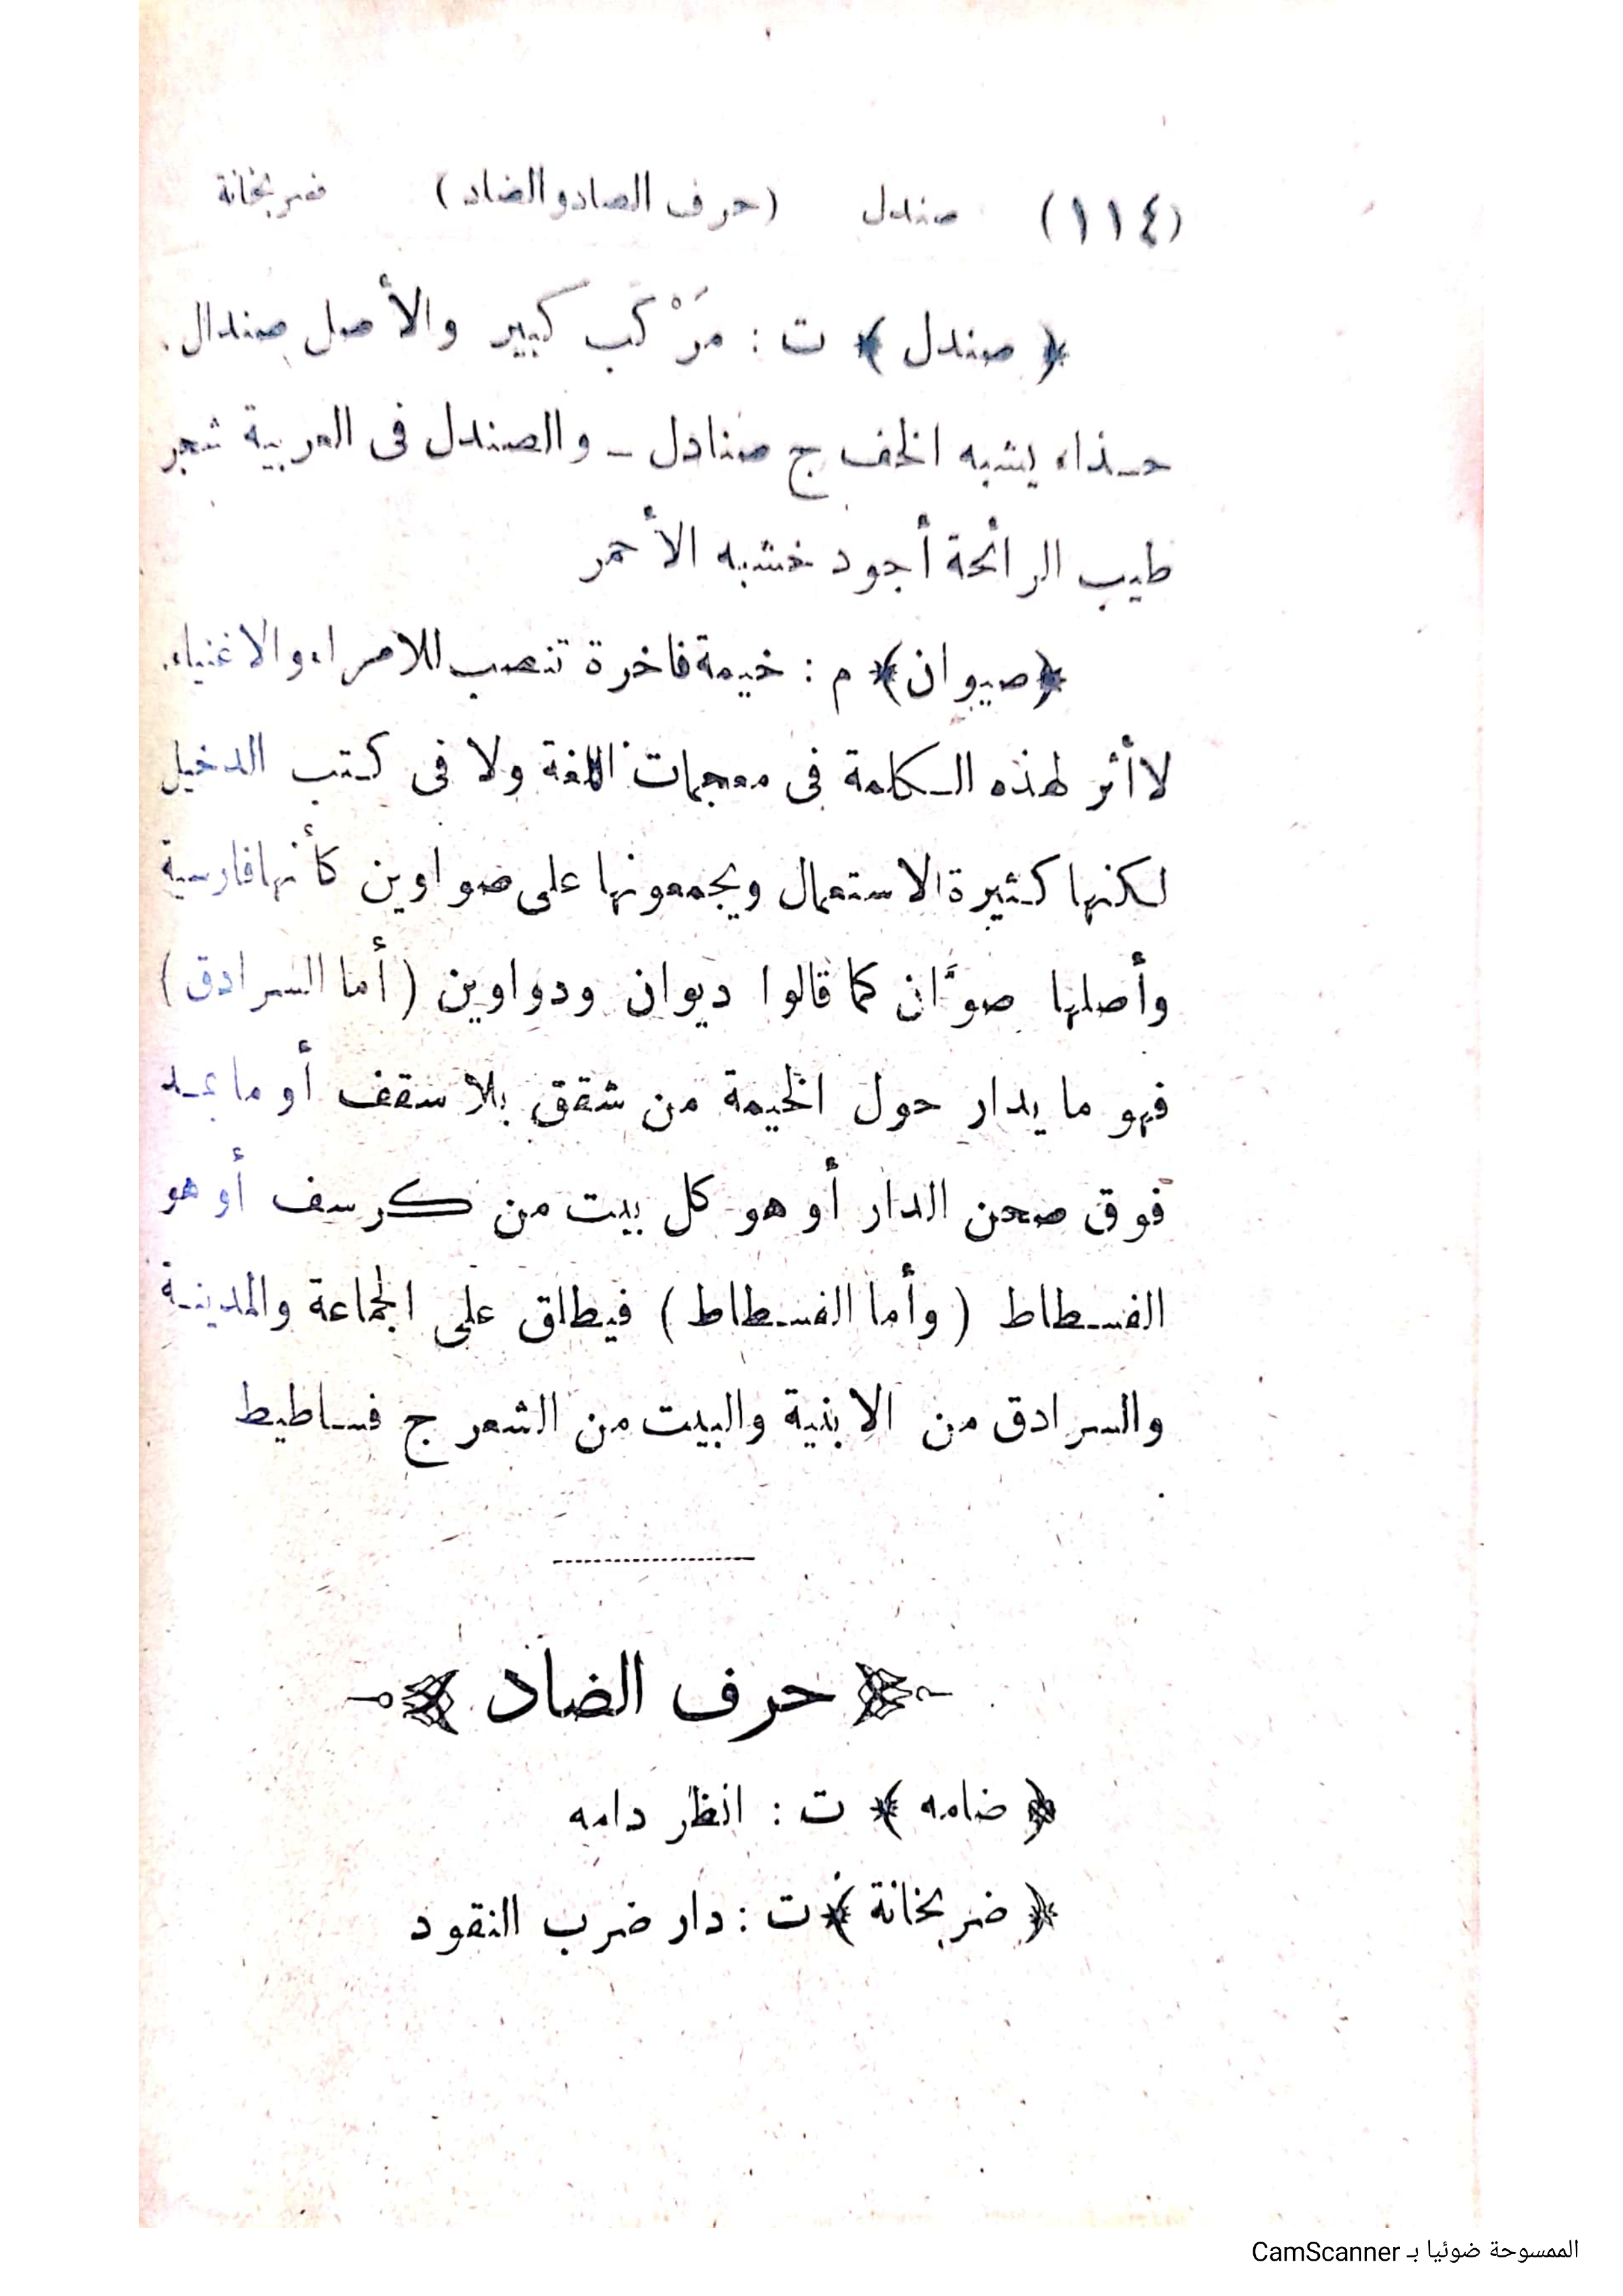 (١١٤) صندل (حرف الصاد والضاد) ضربخانة
﴿ صندل ﴾ ت : مَرْكَب كبير والأصل صندال .
حـذاء يشبه الخف ج صنادل ــ والصندل فى العربية شجر
طيب الرائحة أجود خشبه الأحمر
﴿صيوان﴾ م : خيمة فاخرة تنصب للامراء والاغنياء .
لا أثر لهذه الـكلمة فى معجمات اللغة ولا فى كتب الدخيل
لـكنها كثيرة الاستعمال ويجمعونها على صواوين كأنها فارسية
وأصلها صوَّان كما قالوا ديوان ودواوين ( أما السرادق )
فهو ما يدار حول الخيمة من شقق بلا سقف أو ما يمـد
فوق صحن الدار أو هو كل بيت من كرسف أو هو
الفسـطاط ( وأما الفسـطاط ) فيطلق على الجماعة والمدينـة
والسرادق من الابنية والبيت من الشعر ج فسـاطيط
﴿ حرف الضاد ﴾
﴿ ضامه ﴾ ت : انظر دامه
﴿ ضربخانة ﴾ ت : دار ضرب النقود
الممسوحة ضوئيا بـ CamScanner